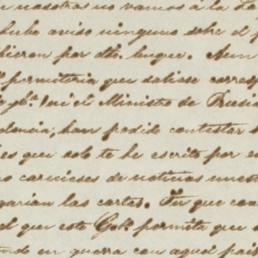 nosotros no vamos á la
hubo aviso ninguno sobre el
hicieron por dho. buque. Aun
permitiria que saliese corresp
qe. fué el Ministro de Prusia
dencia, han podido contestar
es que solo te he escrito por
carecieses de noticias nues
garian las cartas. Sin que
que este Gobo. permita que
en guerra con aquel pais